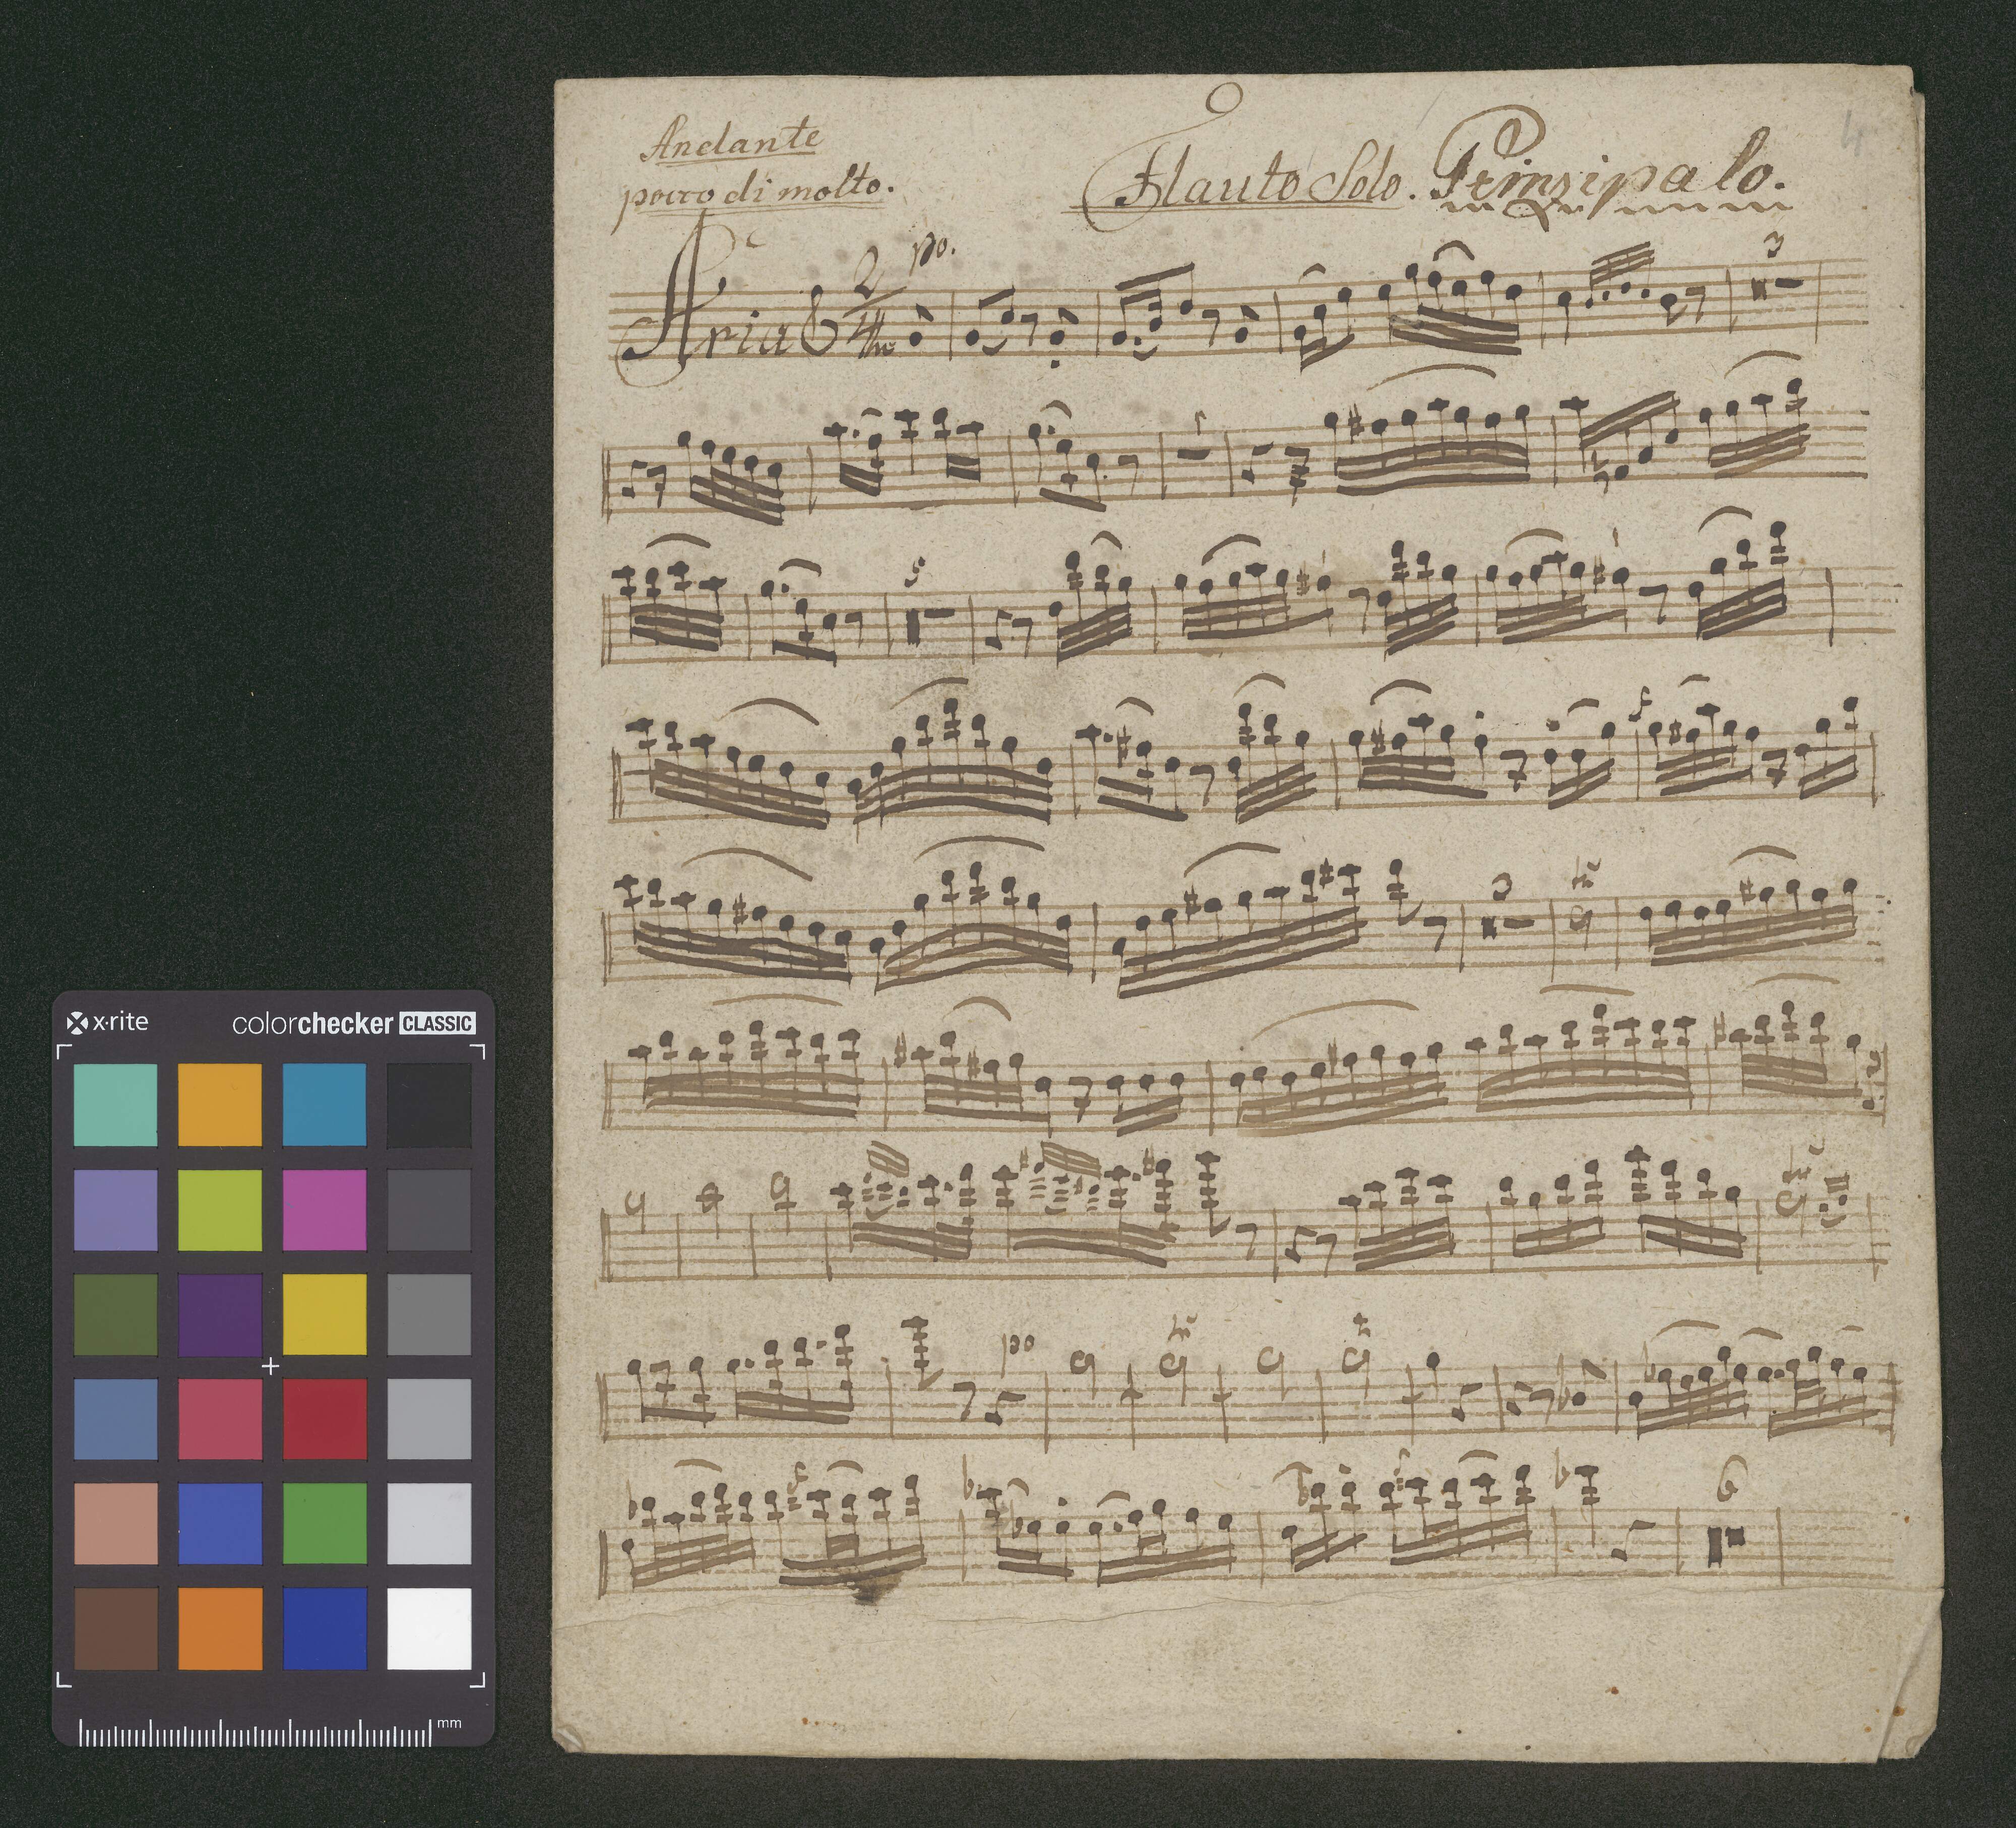 Andante
pocco di molto.
Flauto Solo. Prinsipalo.
4
Aria
2
4
po.
3
5
3
tr
tr
po
tr
6
x·rite
colorchecker CLASSIC
mm